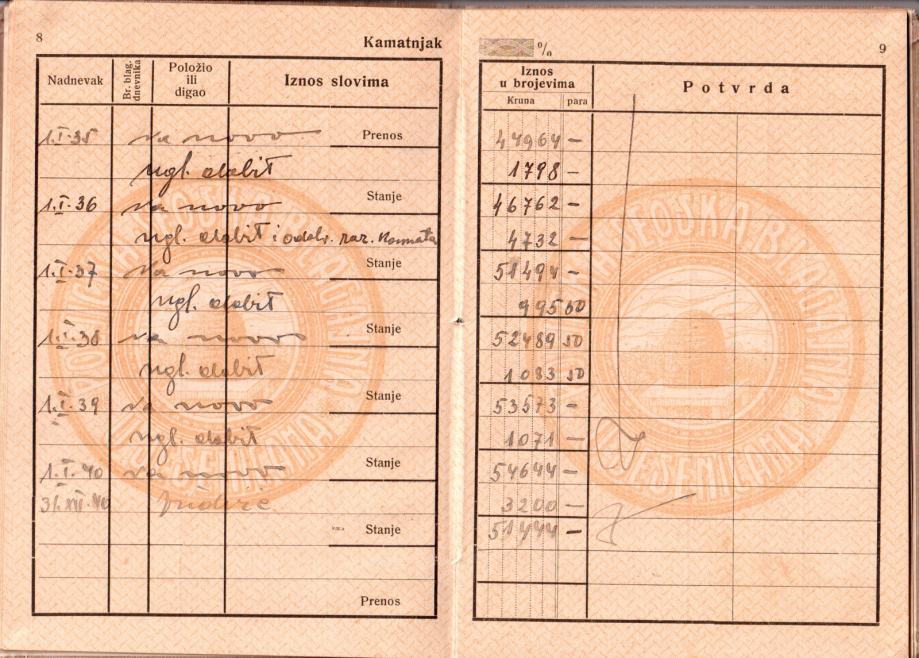 8
Kamatnjak
%
9
Nadnevak
Br. blag. dnevnika
Položio ili digao
Iznos slovima
Iznos u brojevima
Kruna
para
Potvrda
1.I.35 na novo Prenos 44964 —
ugl. dobit 1798 —
1.I.36 na novo Stanje 46762 —
ugl. dobit i 4732 —
1.I.37 na novo Stanje 51494 —
ugl. dobit 995 50
1.I.38 na novo Stanje 52489 50
ugl. dobit 1083 50
1.I.39 na novo Stanje 53573 —
ugl. dobit 1071 —
1.I.40 na novo Stanje 54644 —
31.XII.40 3200 —
Stanje 51444 —
Prenos